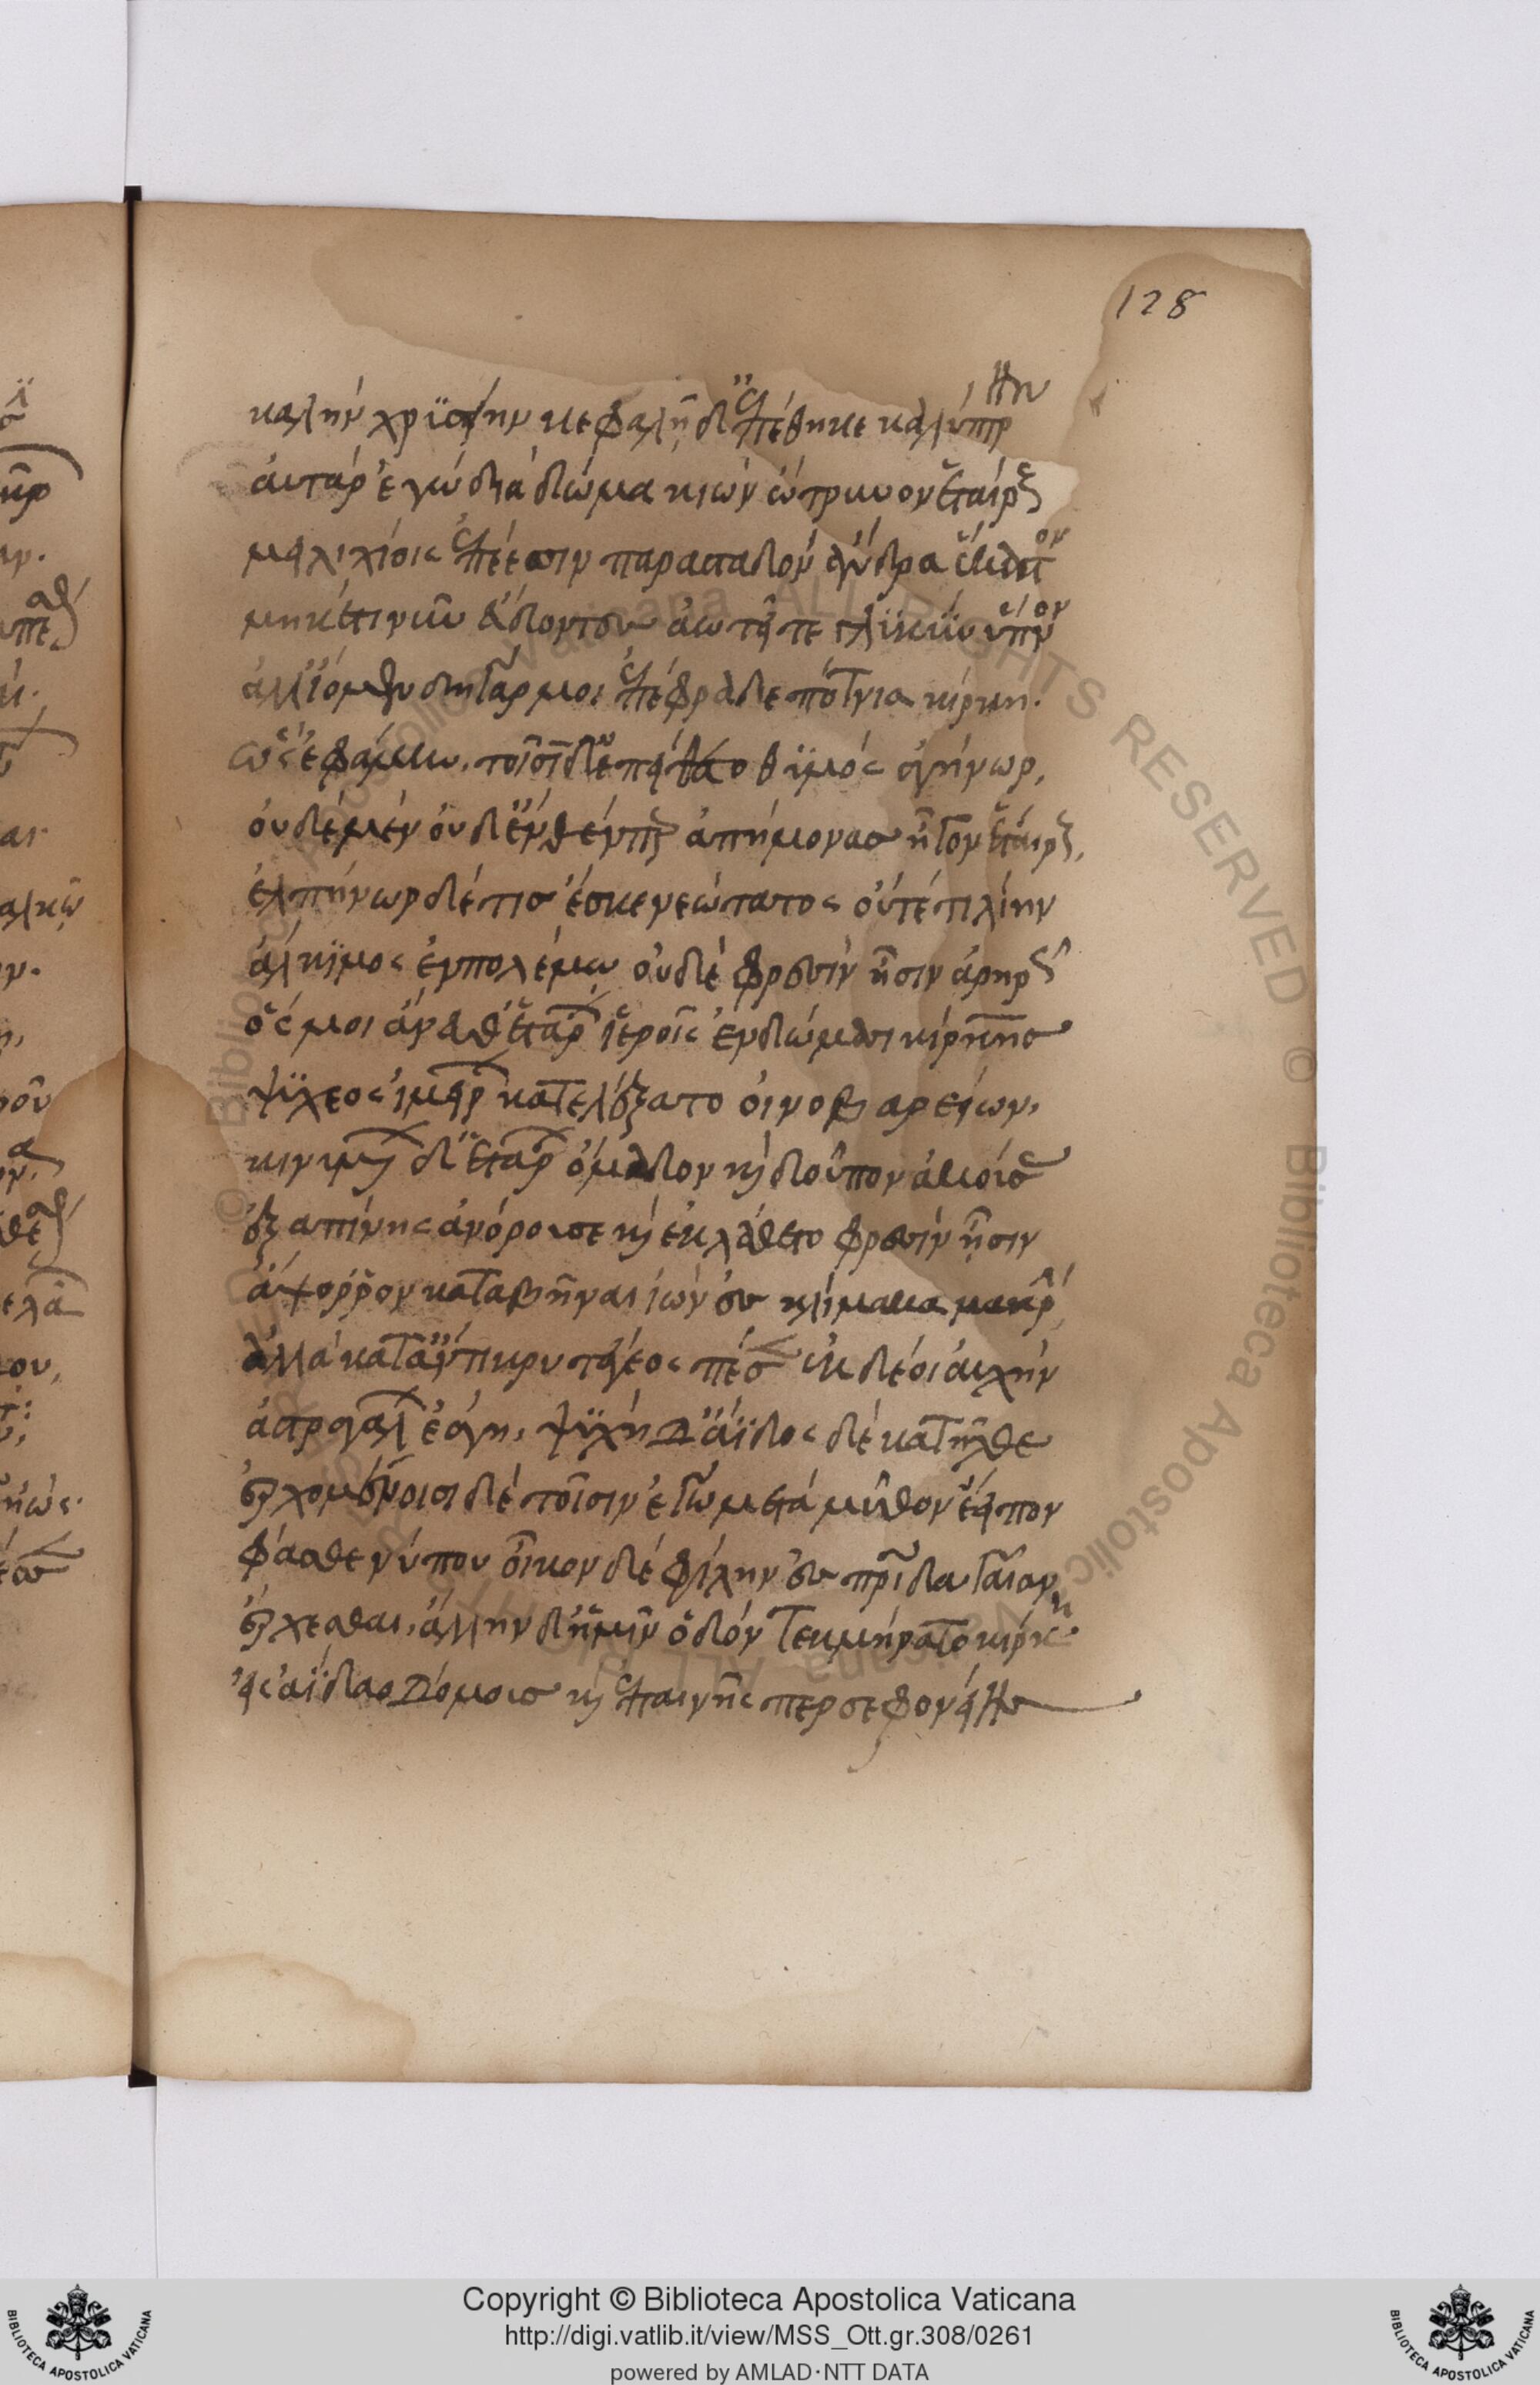 128
καλὴν χρϋσείην κεφαλῆ δ' ἐπέθηκε καλύπτρην
ἀυτὰρ ἐγὼ διὰ δώμα κιὼν ὤτρυνον ἑταίρους
μειλιχίοις ἐπέεσσιν παρασταδὸν ἄνδρα ἕκαστον
μηκέτι νῦν εὕδοντες ἀωτεῖτε γλϋκὺν ὕπνον
ἀλλ' ἴομεν δὴ γάρ μοι ἐπέφραδε πότνια κίρκη.
ὣς ἐφάμην. τοῖσι δ' ἐπεπείθετο θϋμὸς ἀγήνωρ,
ὀυδὲ μὲν ὀυδ' ἔνθέν περ ἀπήμονας ἦγον ἑταίρους,
ἐλπήνωρ δέ τις ἔσκε νεώτατος ὀύτέ τι λίην
ἄλκϊμος ἐν πολέμω ὀυδὲ φρεσὶν ἧσιν ἀρηρώς
ὅς μοι ἄνευθ' ἑτάρων ἱεροῖς ἐν δώμασι κίρκης
ψϋχεος ἱμείρων κατελέξατο οἰνοβαρείων,
κινυμένων δ' ἑτάρων ὅμαδον καὶ δοῦπον ἀκούσας
ἐξαπίνης ἀνόρουσε καὶ ἐκλάθετο φρεσὶν ἧσιν
ἄψορρον καταβῆναι ἰὼν ἐς κλίμακα μακρήν,
ἀλλὰ καταντικρὺ τέγεος πέσεν ἐκ δέ οἱ ἀυχὴν
ἀστραγάλων ἐάγη, ψϋχὴ δ' ἄϊδος δὲ κατῆλθε
ἐρχομένοισι δὲ τοῖσιν ἐγὼ μετὰ μῦθον ἔειπον
φάσθε νύ που οἶκον δὲ φίλην ἐς πατρίδα γαῖαν
ἔρχεσθαι, ἄλλην δ' ἧμιν ὁδὸν τεκμήρατο κίρκη
εἰς ἀΐδαο δόμους καὶ ἐπαινῆς περσεφονείης
Copyright © Biblioteca Apostolica Vaticana
http://digi.vatlib.it/view/MSS_Ott.gr.308/0261
powered by AMLAD·NTT DATA